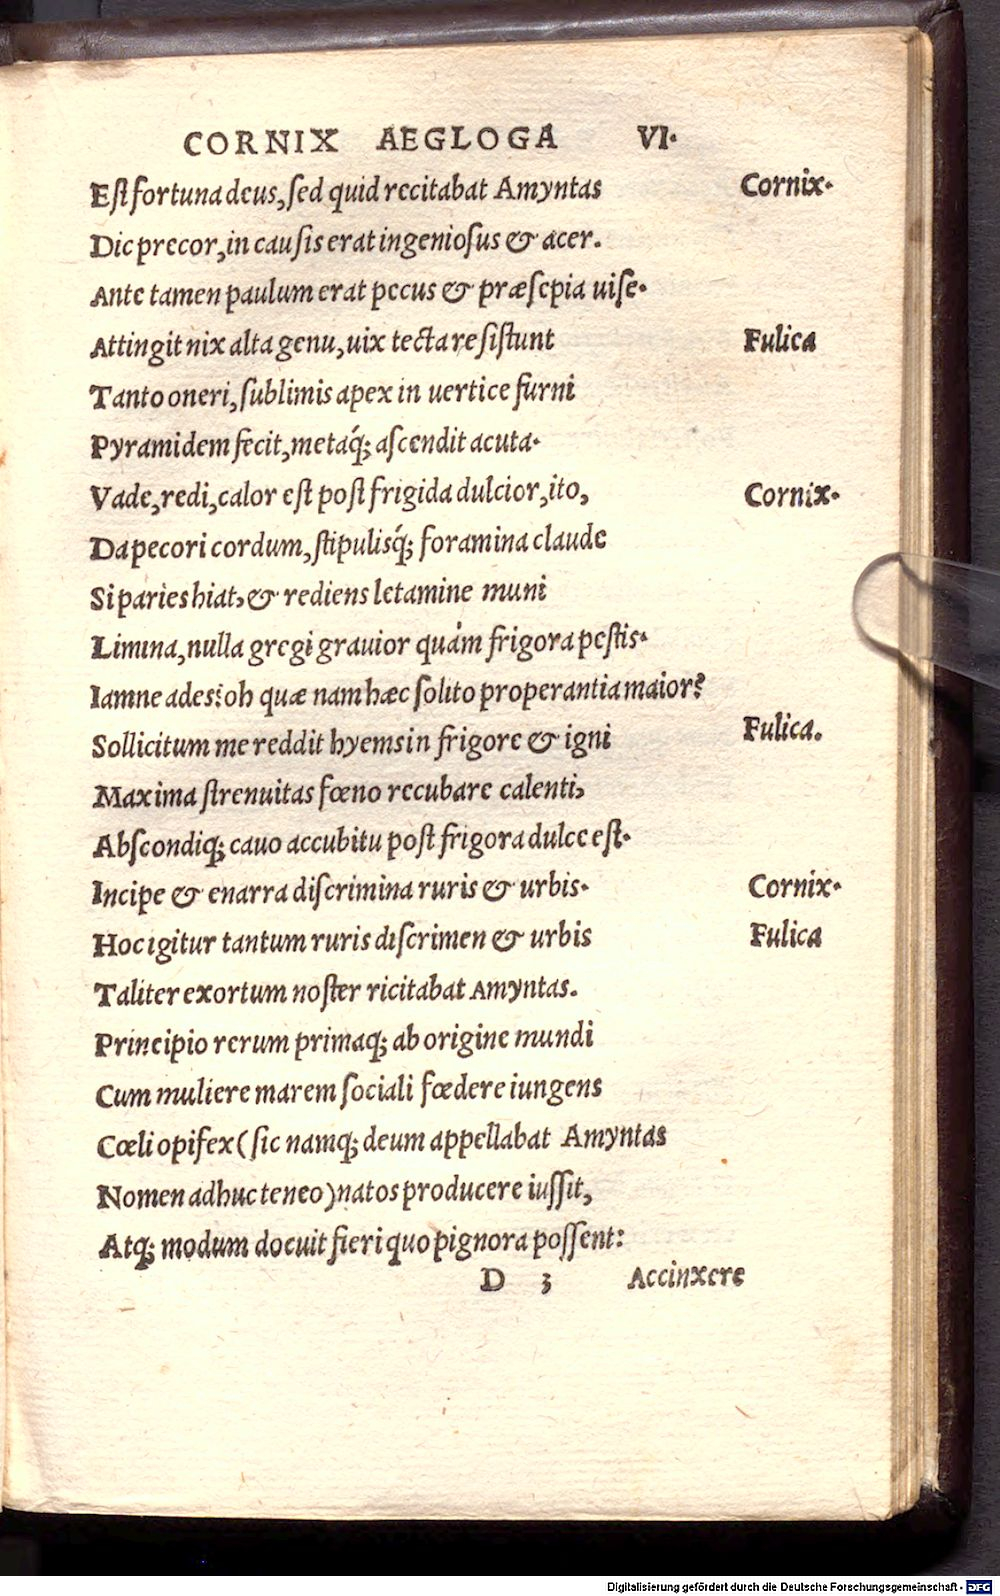 CORNIX AEGLOGA VI.
Est fortuna deus, sed quid recitabat Amyntas Cornix.
Dic precor, in causis erat ingeniosus & acer.
Ante tamen paulum erat pecus & præsepia uise.
Attingit nix alta genu, uix tecta resistunt Fulica
Tanto oneri, sublimis apex in uertice furni
Pyramidem fecit, metáq; ascendit acuta.
Vade, redi, calor est post frigida dulcior, ito, Cornix.
Da pecori cordum, stipulisq́; foramina claude
Si paries hiat, & rediens letamine muni
Limina, nulla gregi grauior quám frigora pestis.
Iamne ades? oh quæ nam hæc solito properantia maior?
Sollicitum me reddit hyems in frigore & igni Fulica.
Maxima strenuitas fœno recubare calenti,
Abscondiq; cauo accubitu post frigora dulce est.
Incipe & enarra discrimina ruris & urbis. Cornix.
Hoc igitur tantum ruris discrimen & urbis Fulica
Taliter exortum noster ricitabat Amyntas.
Principio rerum primaq; ab origine mundi
Cum muliere marem sociali fœdere iungens
Cœli opifex (sic namq; deum appellabat Amyntas
Nomen adhuc teneo) natos producere iussit,
Atq; modum docuit fieri quo pignora possent:
D 3 Accinxere
Digitalisierung gefördert durch die Deutsche Forschungsgemeinschaft - DFG